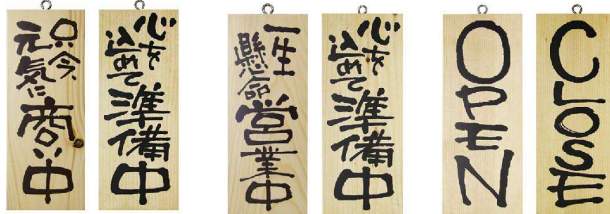 只今、
元気に
商い中
心を
込めて
準備
中
一生
懸命
営業
中
心を
込めて
準備
中
OPEN
CLOSE